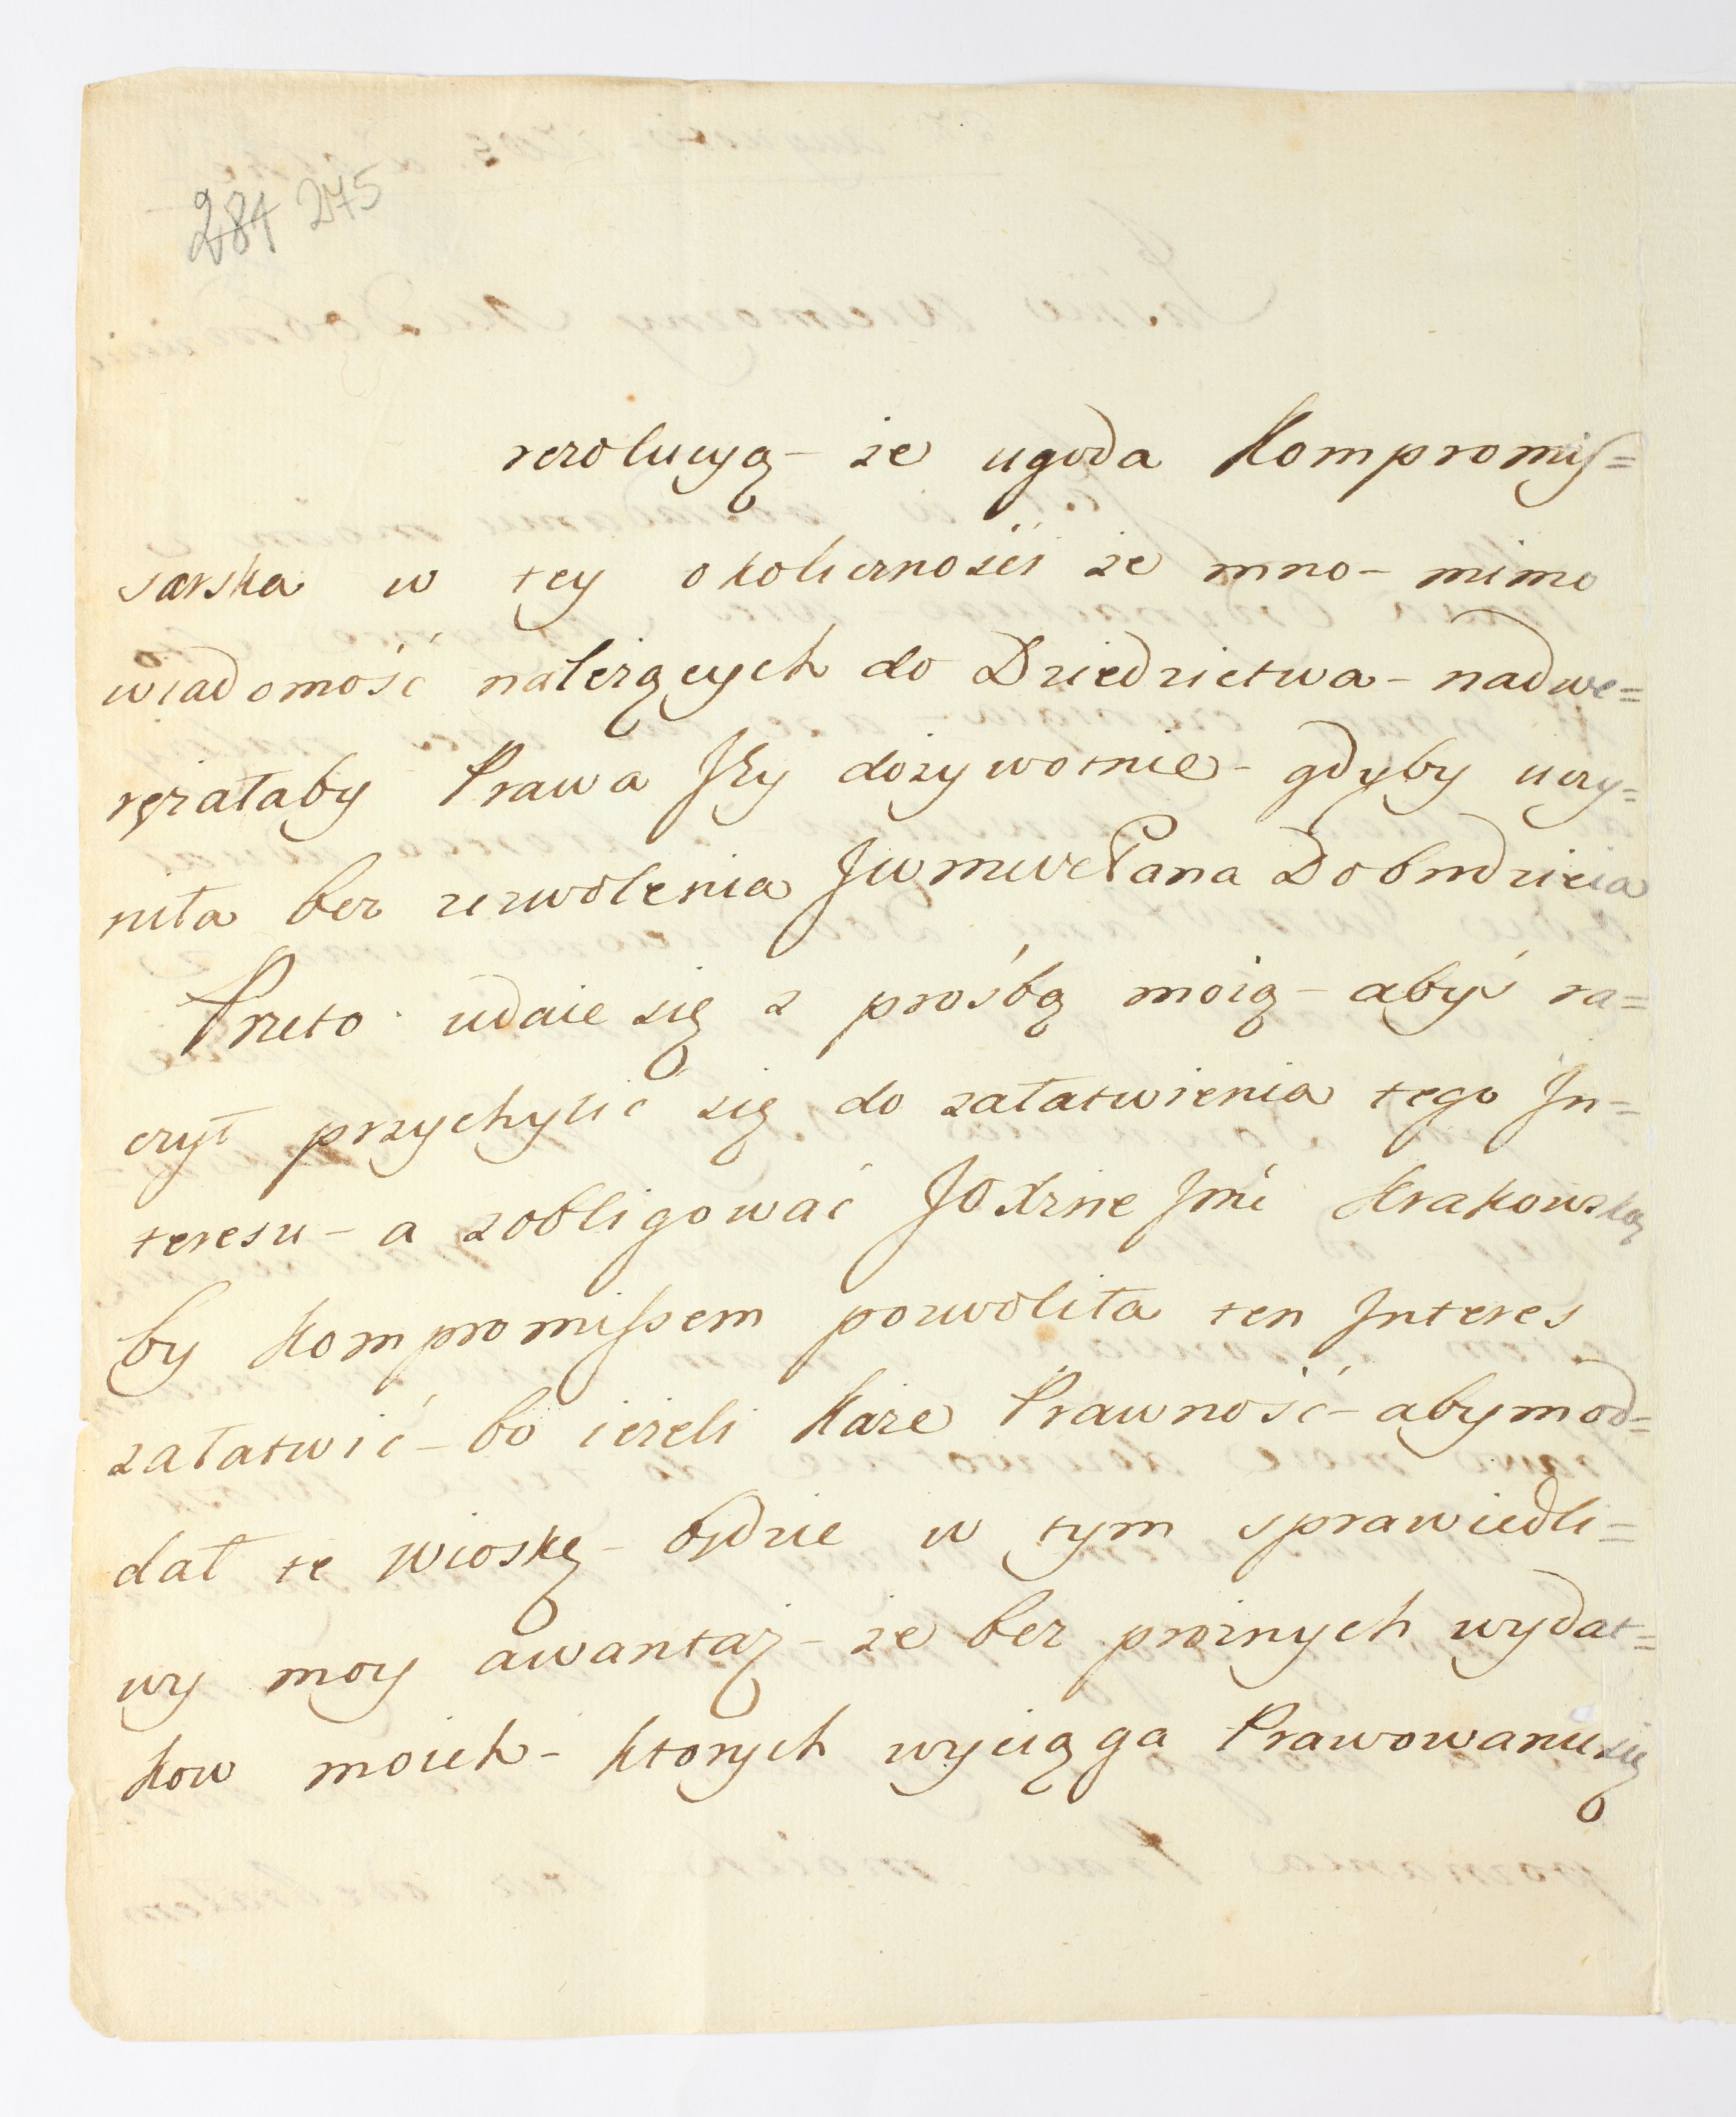 284 275
rezolucyą – ze ugoda Kompromis=
sarska w tey okolicznosci ze mno – mimo
wiadomość nalezących do Dziedzictwa – nadwe=
ręzałaby Prawa Jey dozywotnie – gdyby uczy=
niła bez zezwolenia JWmwePana Dobrodzieia
Przeto udaie się z prośbą moią – abyś ra=
czył przychylić się do załatwienia tego In=
teresu – a zobligować JOXzne Jmć Krakowską
by Kompromissem pozwoliła ten Interes
załatwić – bo iezeli Kaze Prawność – abym od=
dał te Wioskę – będzie w tym sprawiedli=
wy moy awantaz – ze bez proznych wydat=
kow moich – ktorych wyciąga Prawowanie się